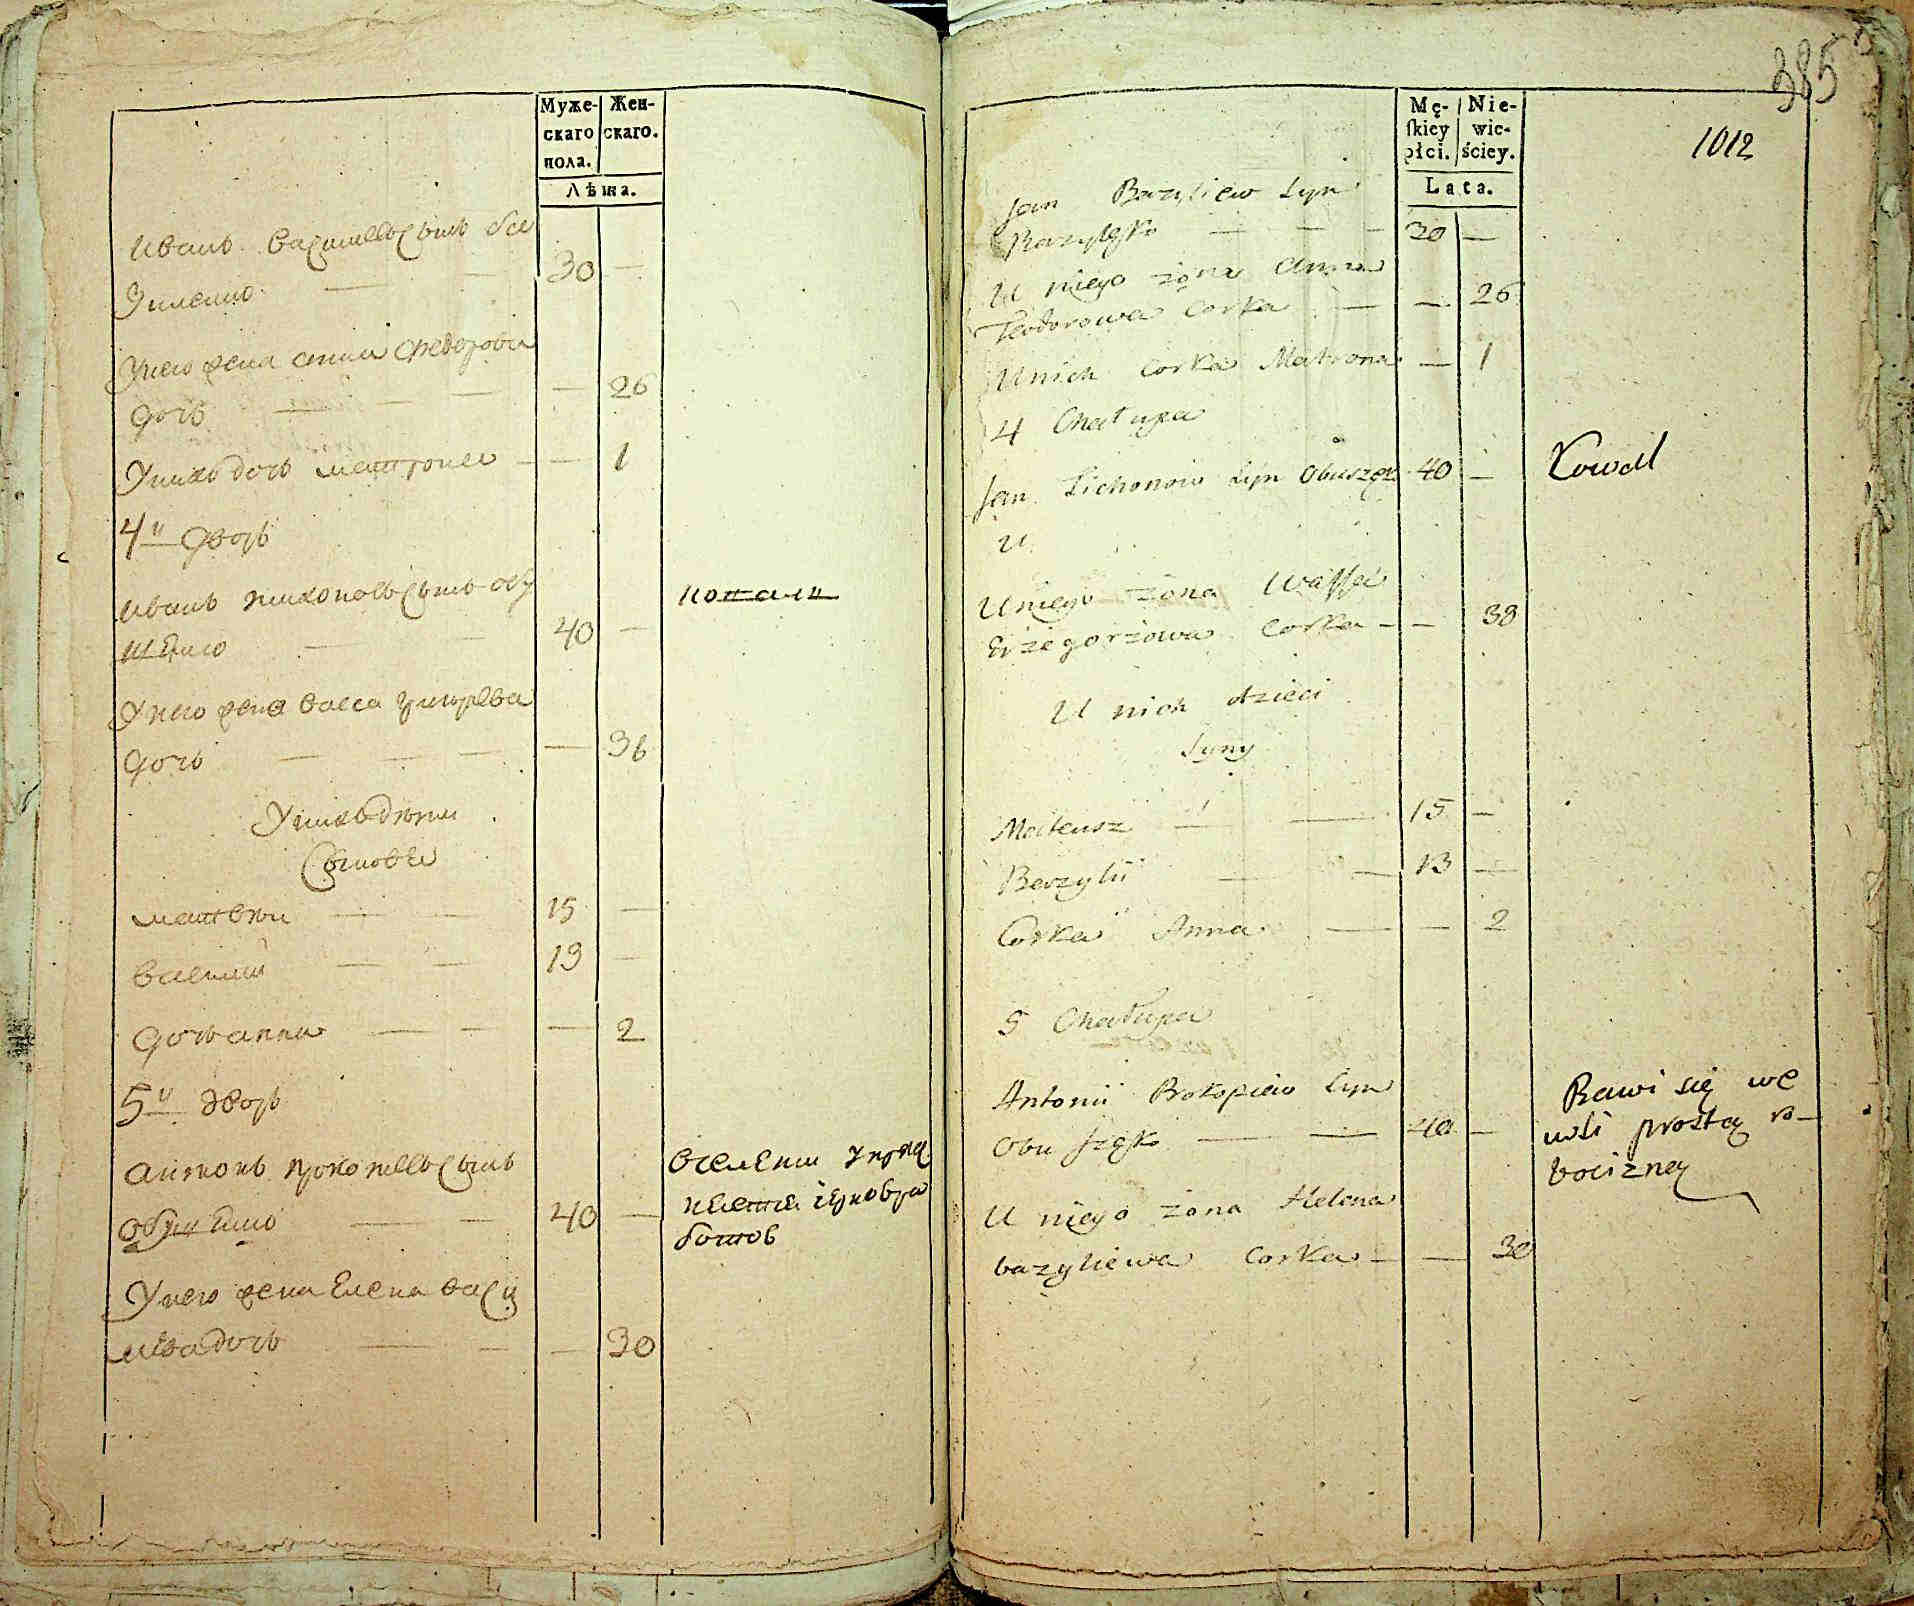 Муже-
скаго
пола.
Жен-
скаго.
Лѣта.
Иванъ васильевъ сынъ
30 —
У него жена анна федорова
дочь — — — — 26
У нихъ дочь матрона — — 1
4й дворъ
Иванъ тихоновъ сынъ обу
шенко — 40 —
коваль
У него жена васса григорева
дочь — — — — 36
У нихъ дѣти
Сыновья
матвѣи — — 15 —
василии — — 13 —
дочь анна — — — 2
5й дворъ
антонъ прокопиевъ сынъ
обушенко — — 40 —
У него жена Елена васи
лиева дочь — — — 30
385
1012
Mę-
skiey
płci.
Nie-
wie-
ściey.
Lata.
Jan Bazyliew Syn
— — — 30 —
U niego żona Anna
Teodorowa Corka — — 26
U nich Corka Matrona — 1
4 Chałupa
Jan Tichonow Syn Obuszęk 40 —
Kowal
U
U niego żona Wassa
Grzegorzowa Corka — — 38
U nich dzieci
Syny
Mateusz — — 15 —
Bazylii — — 13 —
Corka Anna — — 2
5 Chałupa
Antonii Prokopiew Syn
Obuszęko — — 40 —
Bawi się we
wsi prostą ro-
bocizną
U niego żona Helena
bazyliewa Corka — — 30